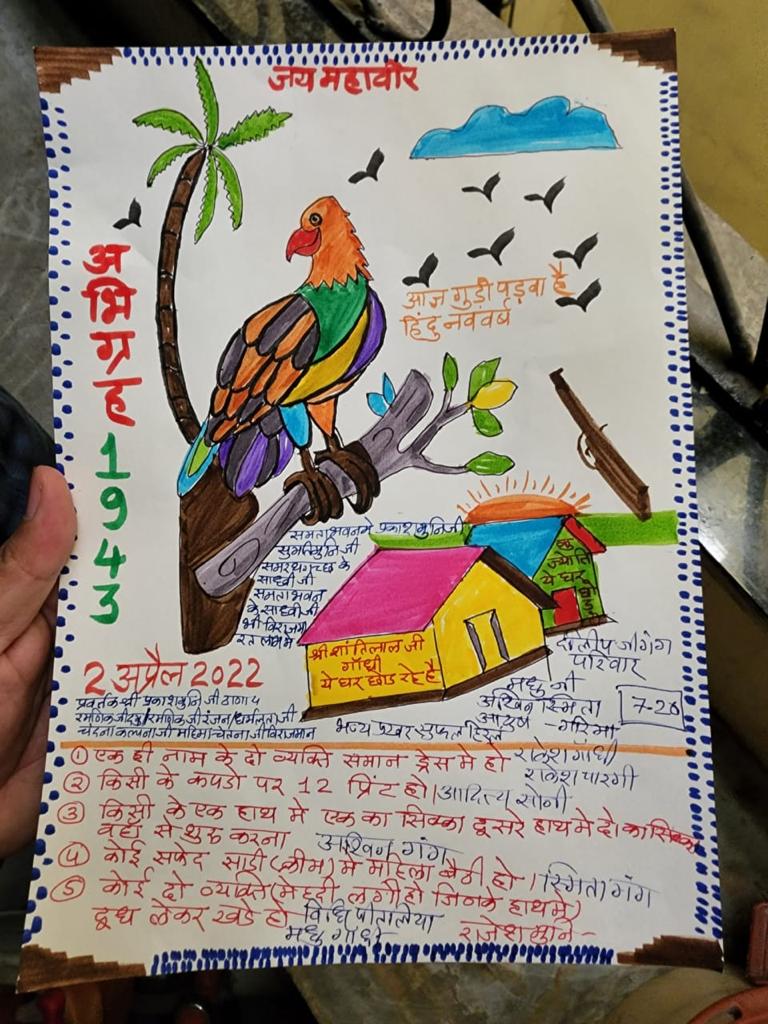 जय महावीर
अभिग्रह
1943
आज गुड़ी पड़वा है
हिंदु नववर्ष
समता भवन मे प्रकाश मुनिजी
सुमतिमुनि जी
समरथगच्छ के
साध्वी जी
समता भवन
के साध्वी जी
भी विराजमा
रतलाम मे
ज्योति
ये घर
छोड़
श्री शांतिलाल जी
गाँधी
ये घर छोड़ रहे है
दिलीप जी गंग
परिवार
मधु जी
अश्विन स्मिता
आरुष - गरिमा
7-20
2 अप्रैल 2022
प्रवर्तक श्री प्रकाश मुनि जी ठाणा 4
चंदना कल्पना जी महिमा चेतना जी विराजमान
भव्य प्रखर सुफल
① एक ही नाम के दो व्यक्ति समान ड्रेस मे हो राकेश गाँधी
राकेश पारगी
② किसी के कपडो पर 12 प्रिंट हो। आदित्य सोनी
③ किसी के एक हाथ मे एक का सिक्का दूसरे हाथ मे दो का सिक्का
वहाँ से शुरु करना अश्विन गंग
④ कोई सफेद साड़ी (क्रीम) मे महिला बैठी हो / स्मिता गंग
⑤ कोई दो व्यक्ति (मेहदी लगी हो जिनके हाथ मे)
दूध लेकर खडे हो विधि पीतलिया
मधु गाँधी राजेश मुनि-